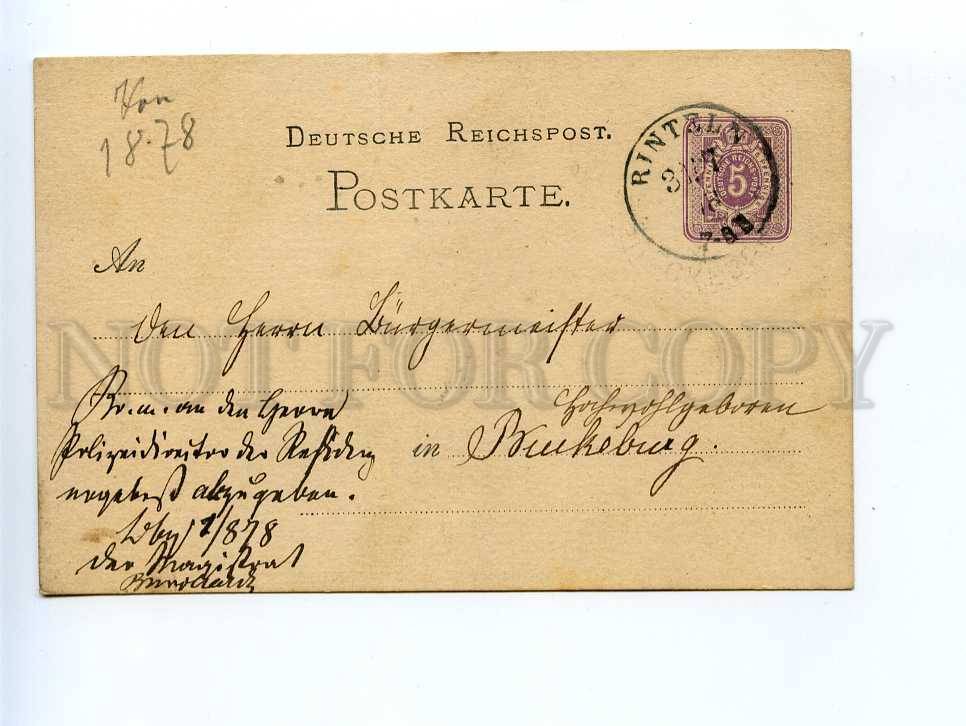 Von
18.78
DEUTSCHE REICHSPOST.
POSTKARTE.
RINTELN
5
DEUTSCHE REICHS-POST
An
den Herrn Bürgermeister
Hochwohlgeboren
in Bückeburg.
an den Herrn
Polizeidirector der Residenz
ergebenst abzugeben.
1/878
der Magistrat
NOT FOR COPY